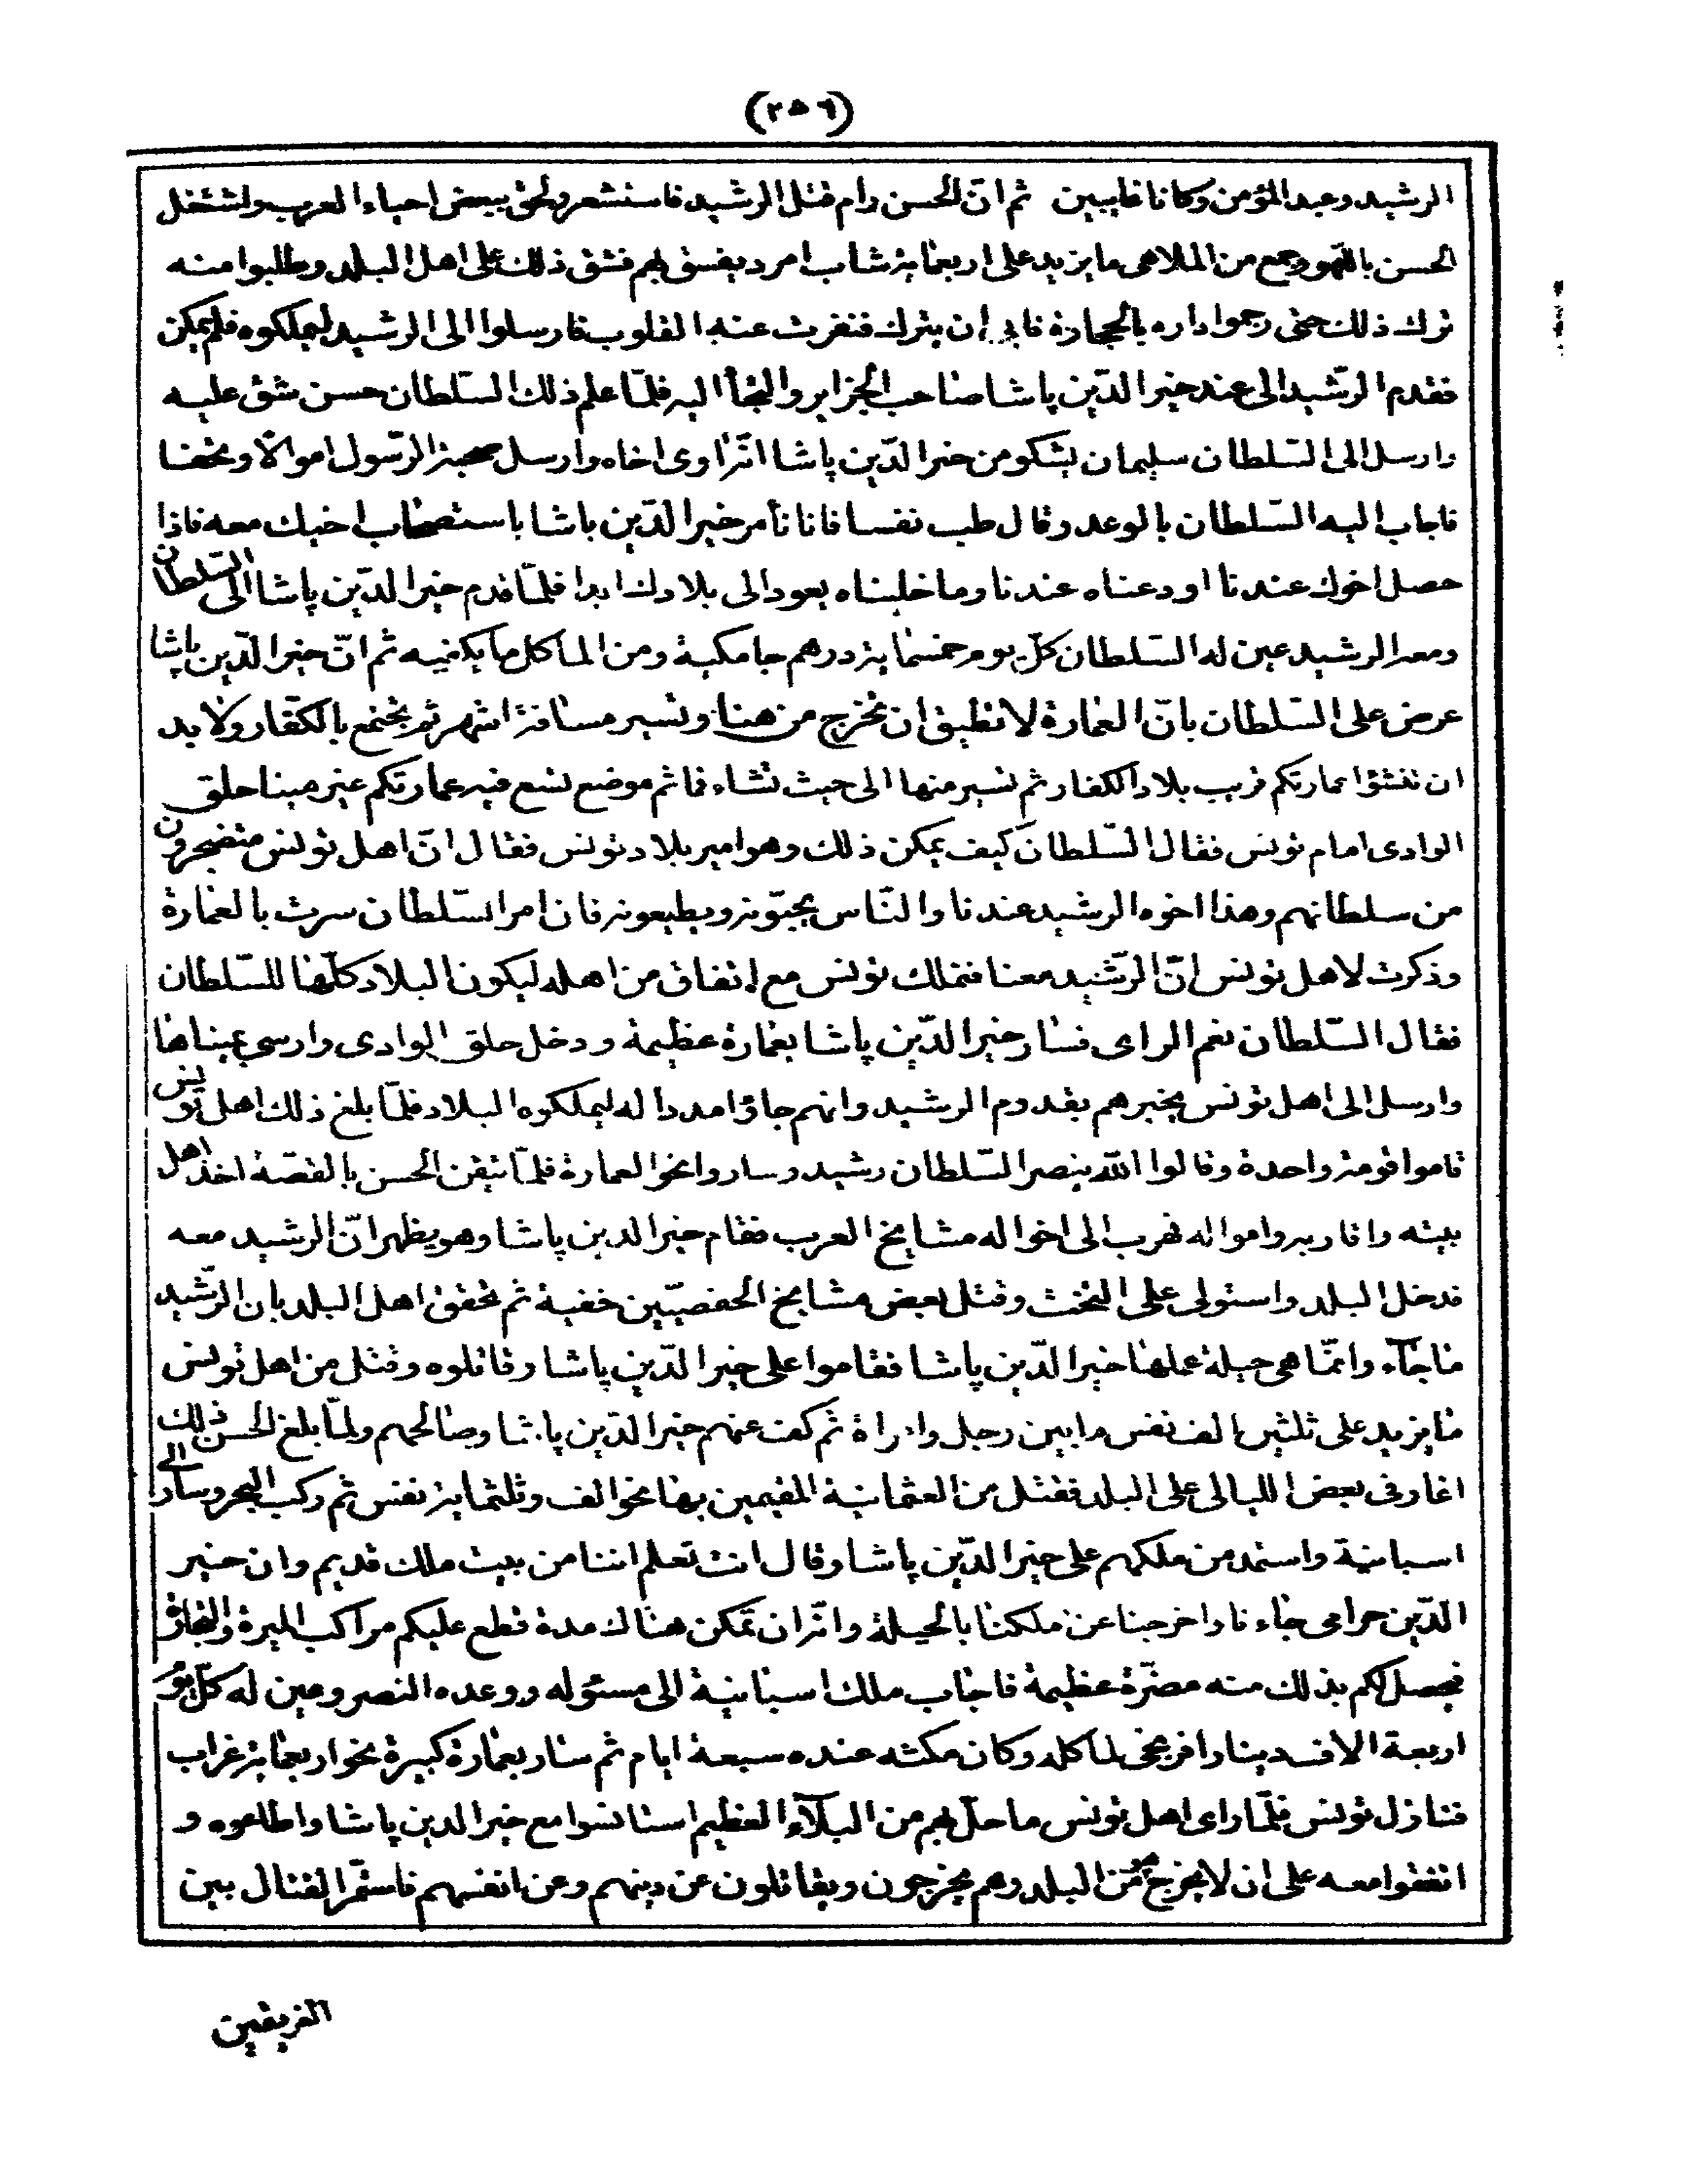 (٢٥٦)
الرشيد وعبد المؤمن وكانا غايبين ثم انّ الحسن رام قتل الرشيد فاستشعر ولحق ببعض احياء العرب واشتغل
الحسن باللهو وجمع من الملاهى ما يزيد على اربعماية شاب امرد يفسق بهم فشق ذلك على اهل البلد وطلبوا منه
ترك ذلك حتى رجموا داره بالحجارة فابى ان يترك فنفرت عنه القلوب فارسلوا الى الرشيد ليملكوه فلم يمكن
فقدم الرّشيد الى عند خير الدّين پاشا صاحب الجزاير والتجأ اليه فلمّا علم ذلك السّلطان حسن شق عليه
وارسل الى السّلطان سليمان يشكو من خير الدّين پاشا انّه اوى اخاه وارسل صحبة الرّسول اموالاً وتحفا
فاجاب اليه السّلطان بالوعد وقال طب نفسا فانا نأمر خير الدّين باشا باستصحاب اخيك معه فاذا
حصل اخوك عندنا اودعناه عندنا وما خليناه يعود الى بلادك ابدا فلمّا قدم خير الدّين پاشا الى السّلطان
ومعه الرشيد عين له السّلطان كلّ يوم خمسماية درهم جامكية ومن الماكل ما يكفيه ثم انّ خير الدّين پاشا
عرض على السّلطان بانّ العمارة لا تطيق ان تخرج من هنا وتسير مسافة اشهر ثم تجتمع بالكفّار ولا بد
ان تفتئوا عمارتكم قريب بلاد الكفار ثم تسير منها الى حيث تشاء فما ثم موضع تسع فيه عمارتكم غير مينا حلق
الوادى امام تونس فقال السّلطان كيف يمكن ذلك وهو امير بلاد تونس فقال انّ اهل تونس متضجرون
من سلطانهم وهذا اخوه الرشيد عندنا والنّاس يحبّونه ويطيعونه فان امر السّلطان سرت بالعمارة
وذكرت لاهل تونس انّ الرّشيد معنا فتملك تونس مع اتفاق من اهله ليكون البلاد كلّها للسّلطان
فقال السّلطان نعم الراى فسار خير الدّين پاشا بعمارة عظيمة ودخل حلق الوادى وارسى بميناها
وارسل الى اهل تونس يخبرهم بقدوم الرشيد وانهم جاؤا مددا له ليملكوه البلاد فلمّا بلغ ذلك اهل تونس
قاموا قومة واحدة وقالوا الله ينصر السّلطان رشيد وساروا نحو العمارة فلمّا تيقن الحسن بالقصّة اخذ اهل
بيته واقاربه وامواله فهرب الى اخواله مشايخ العرب فقام خير الدين پاشا وهو يظهر انّ الرشيد معه
فدخل البلد واستولى على التخت وقتل بعض مشايخ الحفصيّين خفية ثم تحقق اهل البلد بان الرّشيد
ما جآء وانّما هى حيلة عملها خير الدّين پاشا فقاموا على خير الدّين پاشا وقاتلوه وقتل من اهل تونس
ما يزيد على ثلثين الف نفس ما بين رجل وامراة ثم كف عنهم خير الدّين پاشا وصالحهم ولمّا بلغ الحسن ذلك
اغار فى بعض الليالى على البلد فقتل من العثمانية المقيمين بها نحو الف وثلثماية نفس ثم ركب البحر وسار الى
اسبانية واستمد من ملكهم على خير الدّين پاشا وقال انت تعلم اننا من بيت ملك قديم وان خير
الدّين حرامى جاءنا واخرجنا عن ملكنا بالحيلة وانّه ان تمكن هناك مدة قطع عليكم مراكب الميرة والتجارة
فيحصل لكم بذلك منه مضرّة عظيمة فاجاب ملك اسبانية الى مسئوله ووعده النصر وعين له كلّ يوم
اربعة الاف دينار افرنجى لماكله وكان مكثه عنده سبعة ايام ثم سار بعمارة كبيرة نحو اربعماية غراب
فنازل تونس فلمّا راى اهل تونس ما حلّ بهم من البلآء العظيم استانسوا مع خير الدين پاشا واطاعوه و
اتفقوا معه على ان لا يخرج هو من البلد وهم يخرجون ويقاتلون عن دينهم وعن انفسهم فاستمّر القتال بين
الفريقين